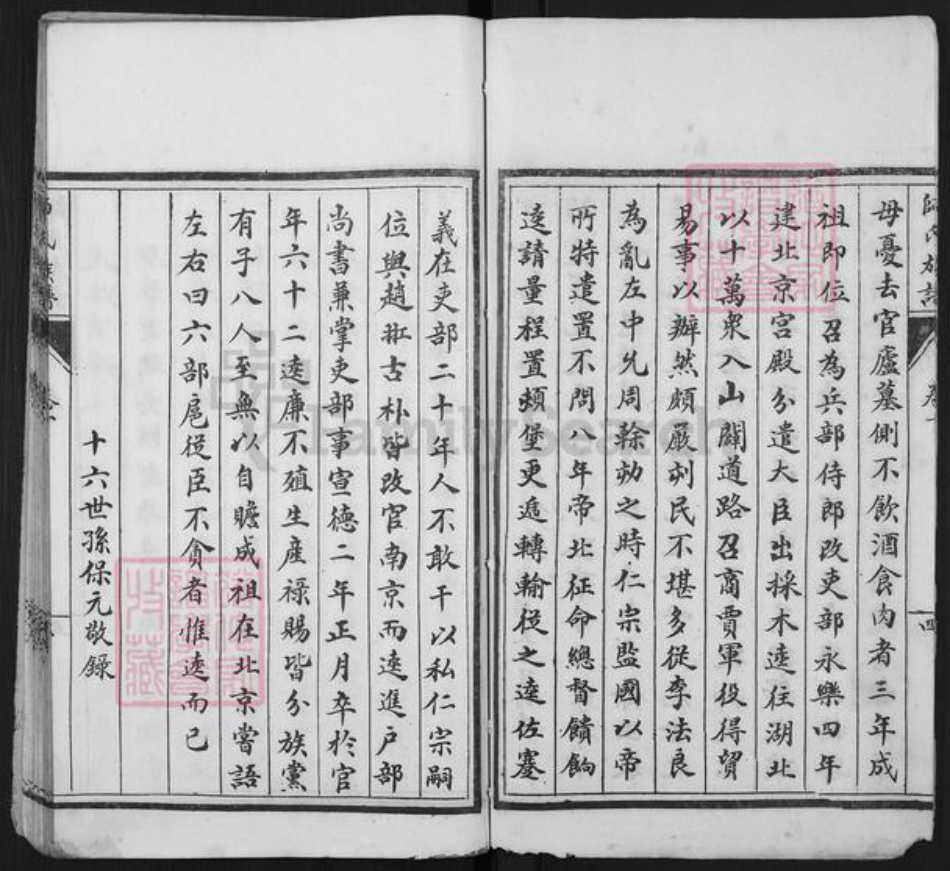 母憂去官廬墓側不飲酒食肉者三年成
祖即位召為兵部侍郎改吏部永樂四年
建北京宮殿分遣大臣出採木逵往湖北
以十萬衆入山闢道路召商賈軍役得貿
易事以辦然頗嚴刻民不堪多從李法良
為亂左中允周榦劾之時仁宗監國以帝
所特遣置不問八年帝北征命總督饋餉
逵請量程置頓堡更遞轉輸從之逵佐蹇
義在吏部二十年人不敢干以私仁宗嗣
位與趙羾古朴皆改官南京而逵進戶部
尚書兼掌吏部事宣德二年正月卒於官
年六十二逵廉不殖生產祿賜皆分族黨
有子八人至無以自贍成祖在北京嘗語
左右曰六部扈從臣不貪者惟逵而已
十六世孫保元敬錄
師氏族譜
四
FamilySearch